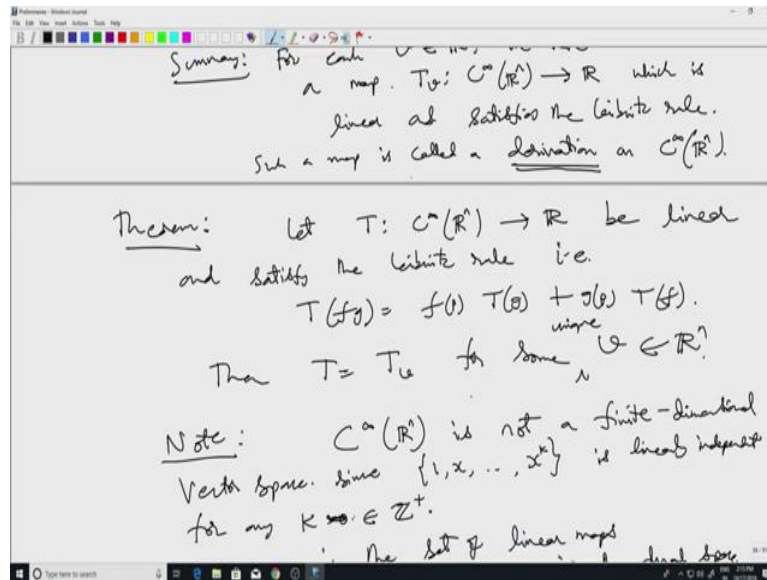 Preliminaries - Windows Journal
File Edit View Insert Actions Tools Help
Summary: For each v ∈ we
a map. T_v: C^∞(ℝ^n) → ℝ which is
linear and satisfies the Leibnitz rule.
Such a map is called a derivation on C^∞(ℝ^n).
Theorem: Let T: C^∞(ℝ^n) → ℝ be linear
and satisfy the Leibnitz rule i.e.
T(fg) = f(p) T(g) + g(p) T(f).
Then T = T_v for some unique v ∈ ℝ^n.
Note: C^∞(ℝ^n) is not a finite-dimensional
Vector space. Since {1, x, .., x^k} is linearly independent
for any K ∈ ℤ^+.
the set of linear maps
dual space
Type here to search
2:15 PM